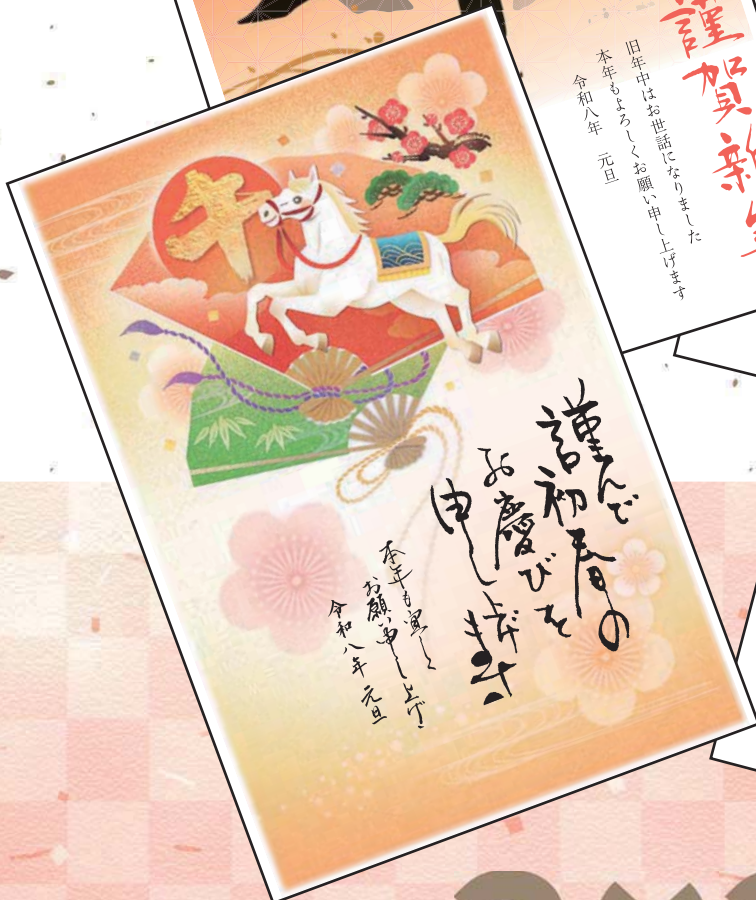 謹賀新年
旧年中はお世話になりました
本年もよろしくお願い申し上げます
令和八年 元旦
午
謹んで
初春の
お慶びを
申し上げます
本年も宜しく
お願い申し上げます
令和八年 元旦